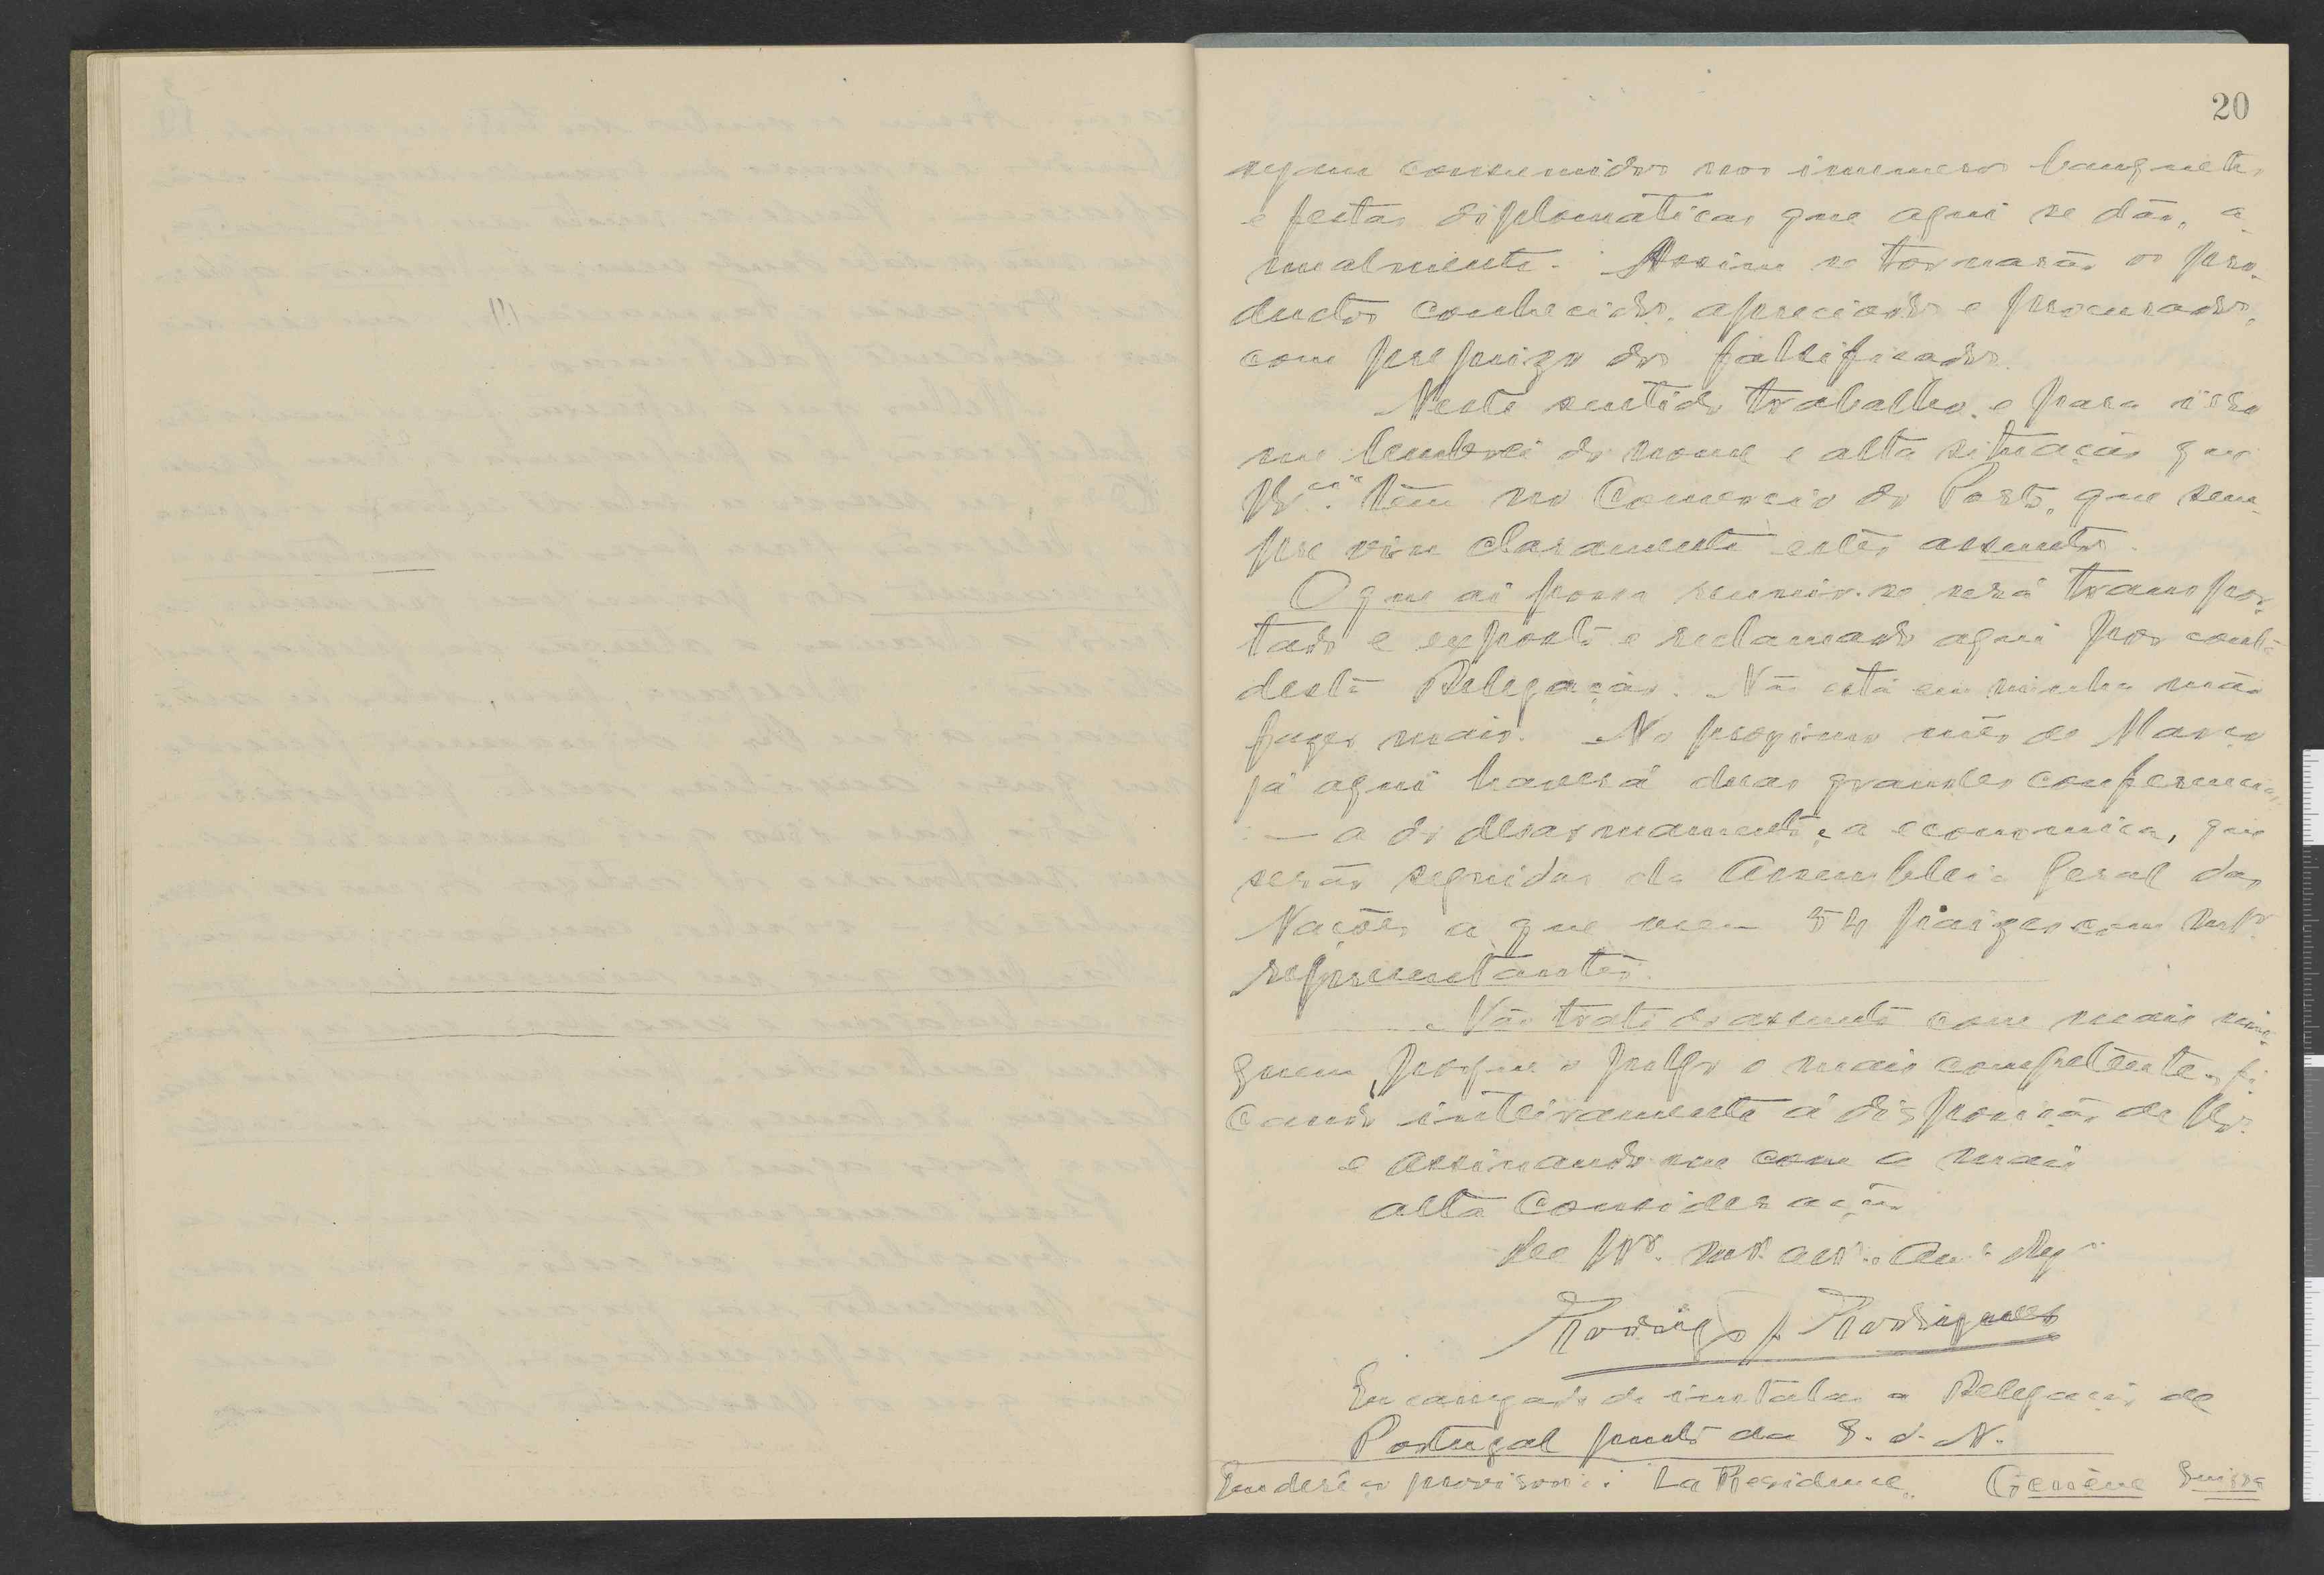 20
sejam consumidos nos inumeros banquetes
e festas diplomáticas que aqui se dão, a-
nualmente. Assim se tornarão os pro-
ductos conhecidos, apreciados e procurados,
com prejuizo dos falsificados.
Neste sentido trabalho, e para isso
me lembrei do nome e alta situação que
V. Ex.ª têm no Comercio do Porto, que sem-
pre viu claramente estes assuntos.
O que aí possa reunir-se será transpor-
tado e exposto e reclamado aqui por conta
desta Delegação. Não está em minha mão
fazer mais. No proximo mês de Março
já aqui haverá duas grandes conferencias,
— a do desarmamento e a economica, que
serão seguidas da Assembleia Geral das
Nações a que vem 54 paizes com m.tos
representantes.
Não trato do assunto com mais nin-
guem, porque o julgo o mais competente, fi-
cando inteiramente á disposição de V.
e assinando-me com a mais
alta consideração
De V.
Rodrigo J. Rodrigues
Encarregado de instalar a Delegação de
Portugal junto da S. d. N.
Endereço provisorio: La Residence, Genève Suisse